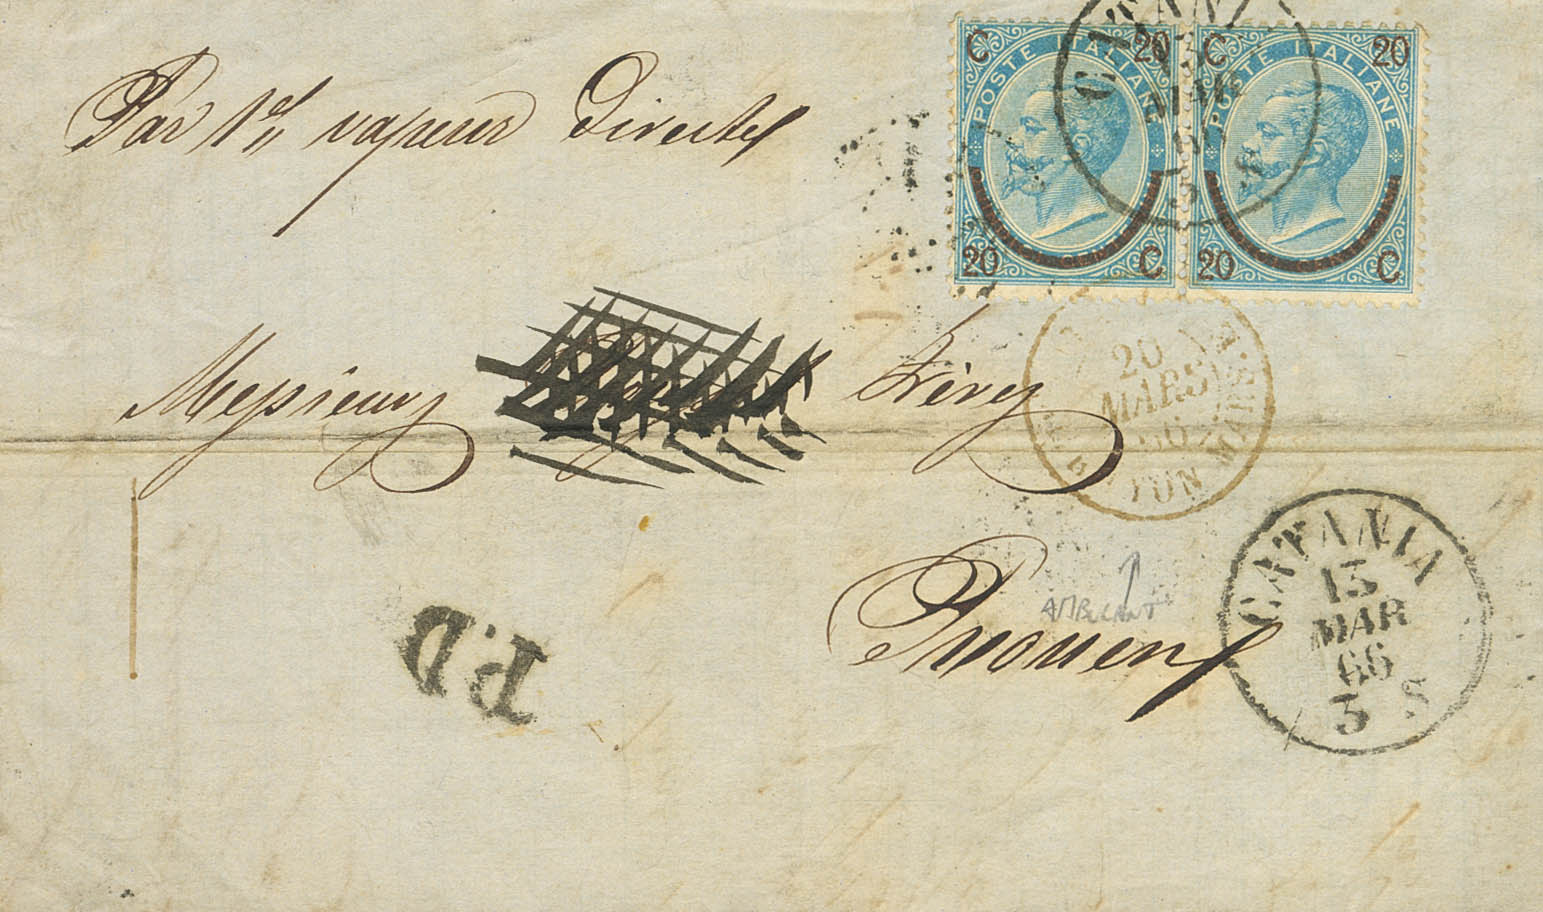 Par 1er vapeur Directe
C 20
POSTE ITALIANE
20 C
C 20
POSTE ITALIANE
20 C
CATAN
MAR
Messieurs Frères
20
MARS
66
P.D
Rouen
AMBULANT
CATANIA
13
MAR
66
3 S